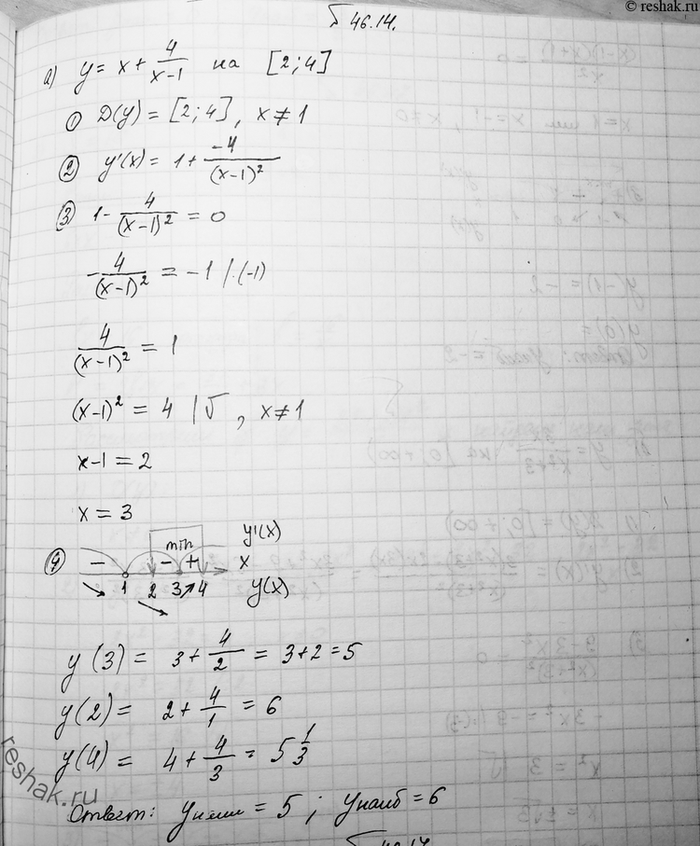 © reshak.ru
№ 46.14.
а) y = x + 4/(x-1) на [2;4]
① D(y) = [2;4], x ≠ 1
② y'(x) = 1 + -4/(x-1)²
③ 1 - 4/(x-1)² = 0
-4/(x-1)² = -1 |·(-1)
4/(x-1)² = 1
(x-1)² = 4 |√ , x ≠ 1
x-1 = 2
x = 3
④ min y'(x)
- - + x
1 2 3 4 y(x)
y(3) = 3 + 4/2 = 3+2 = 5
y(2) = 2 + 4/1 = 6
y(4) = 4 + 4/3 = 5 1/3
reshak.ru
Ответ: yнаим = 5 ; yнаиб = 6